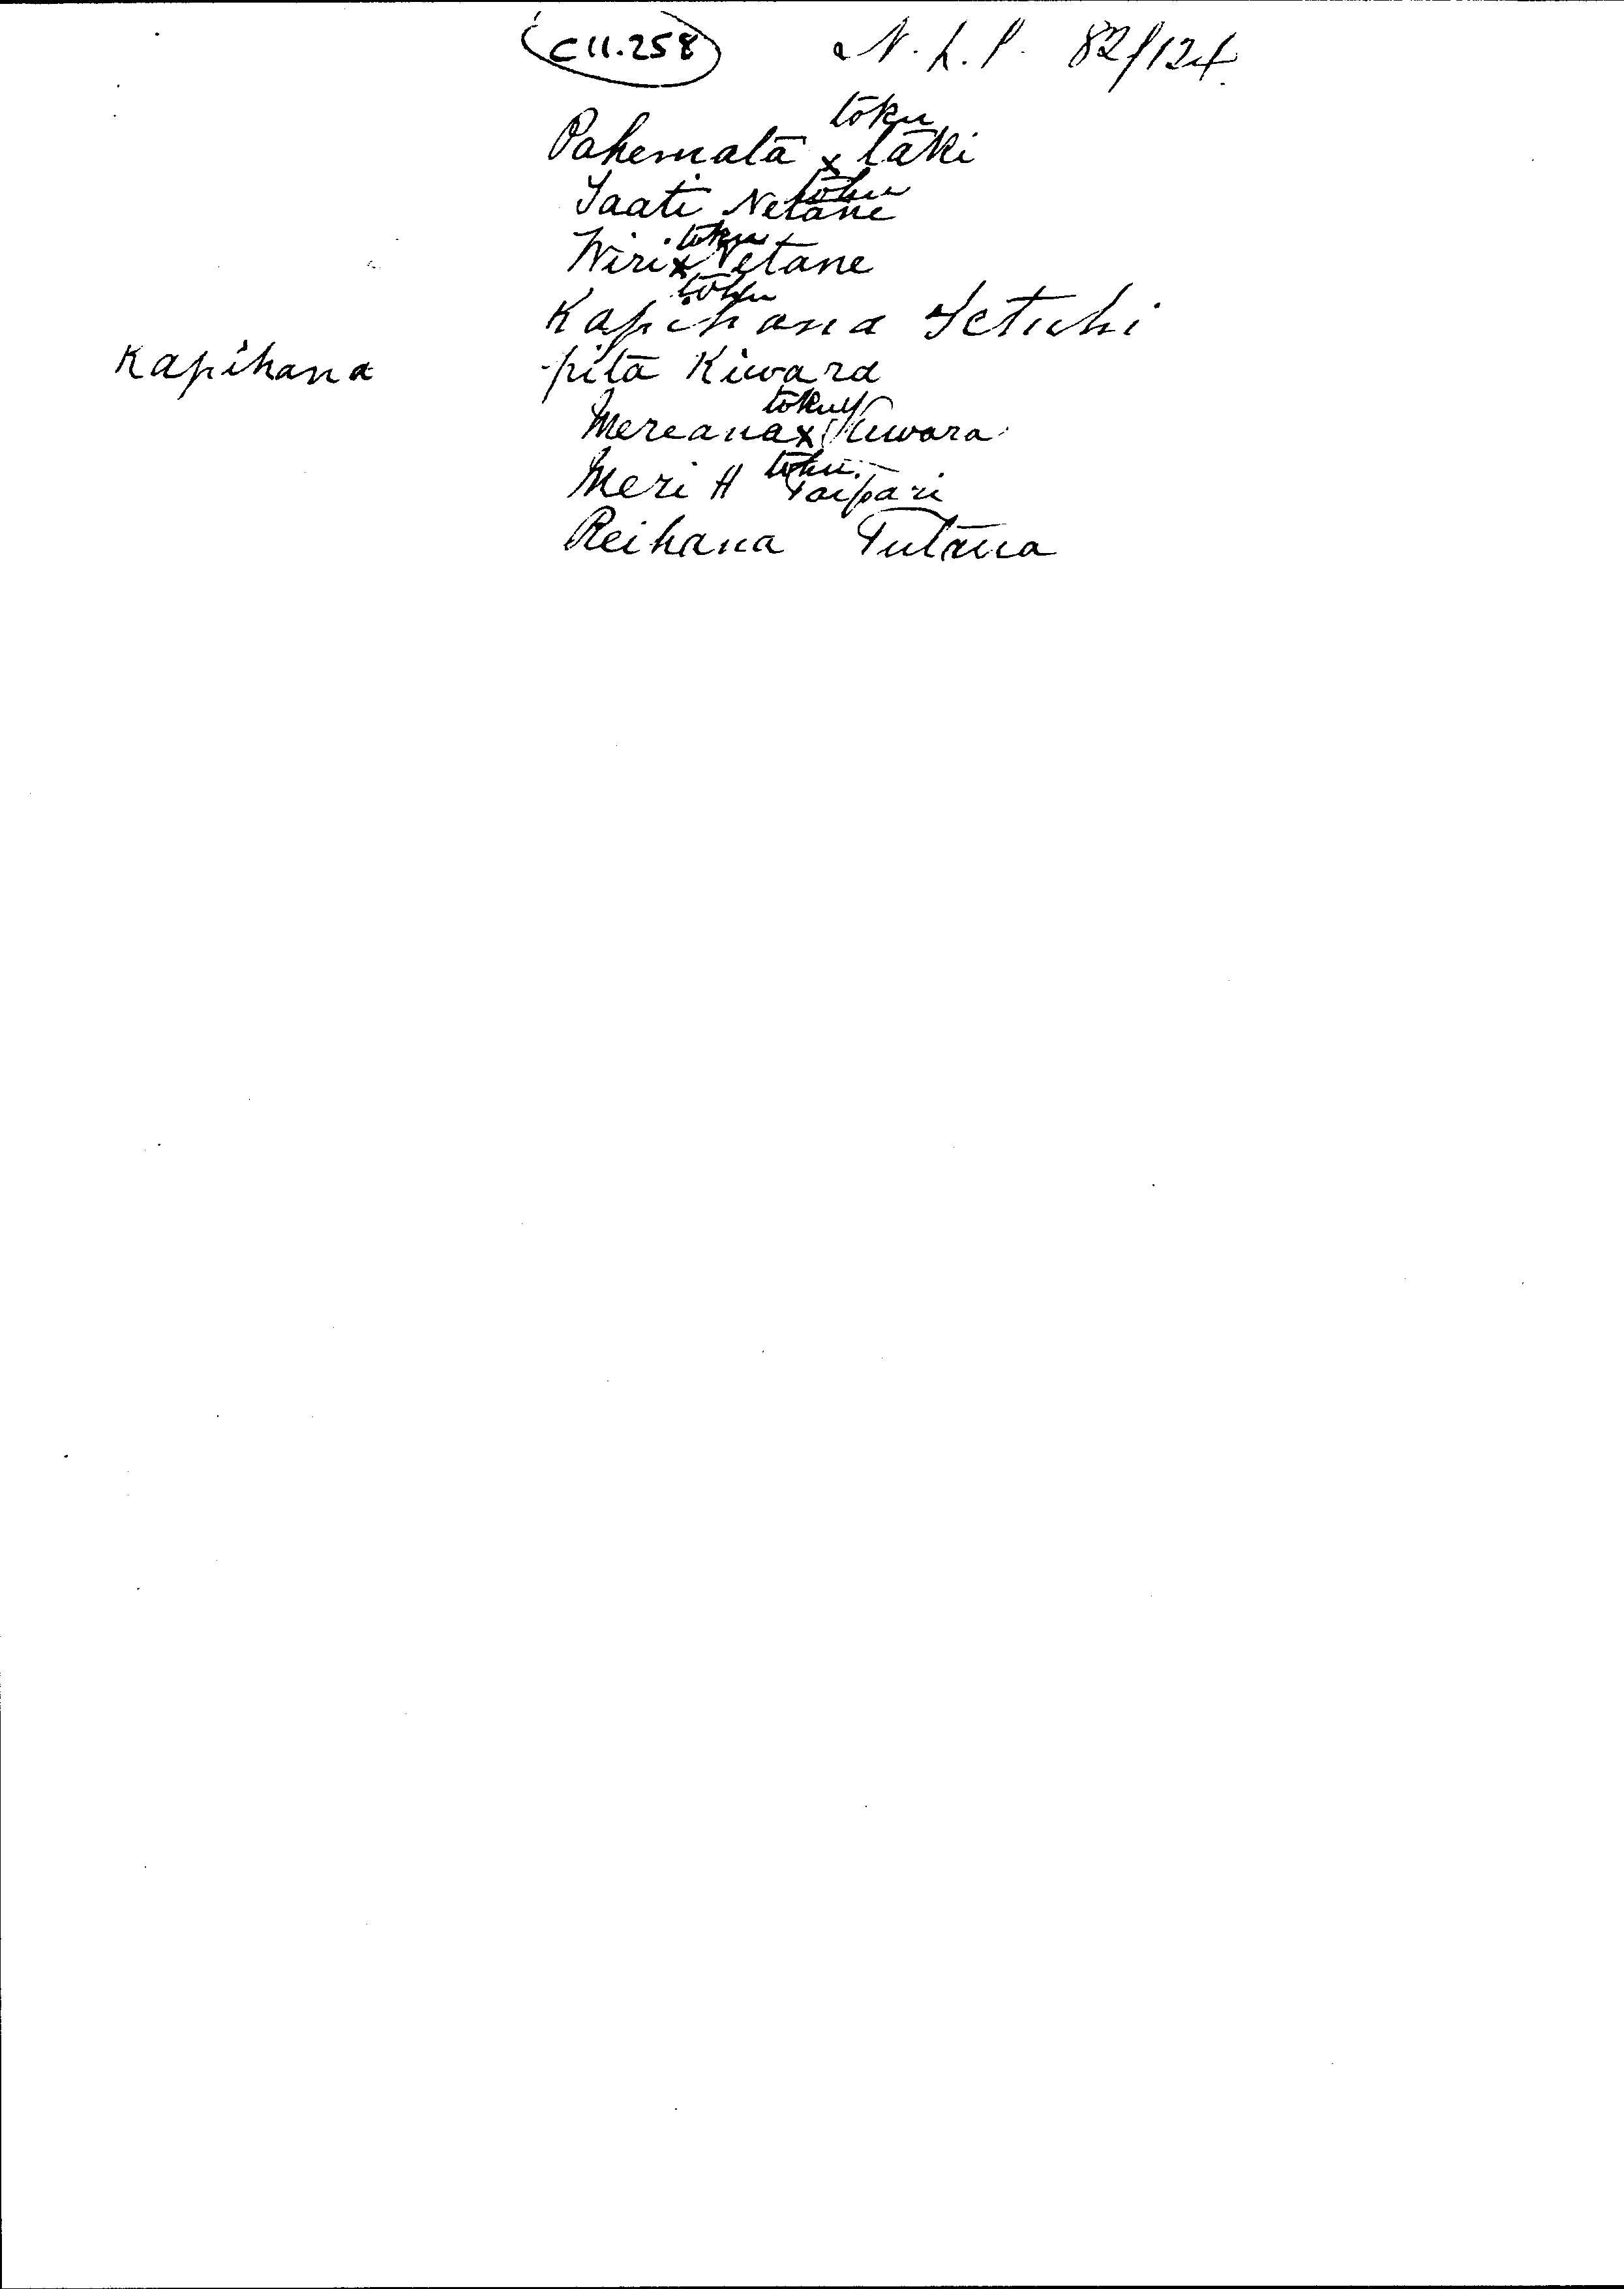 C11.258 N.L.P. 82/124
tōku
Pahemata x taki
tohu
Taati Netane
tohu
Wiri x Netane
tohu
Kapihana Tetuhi
Kapihana pita Kiwara
toku
Mereana x Kiwara
tohu
Meri H Taipari
Reihana Tutana